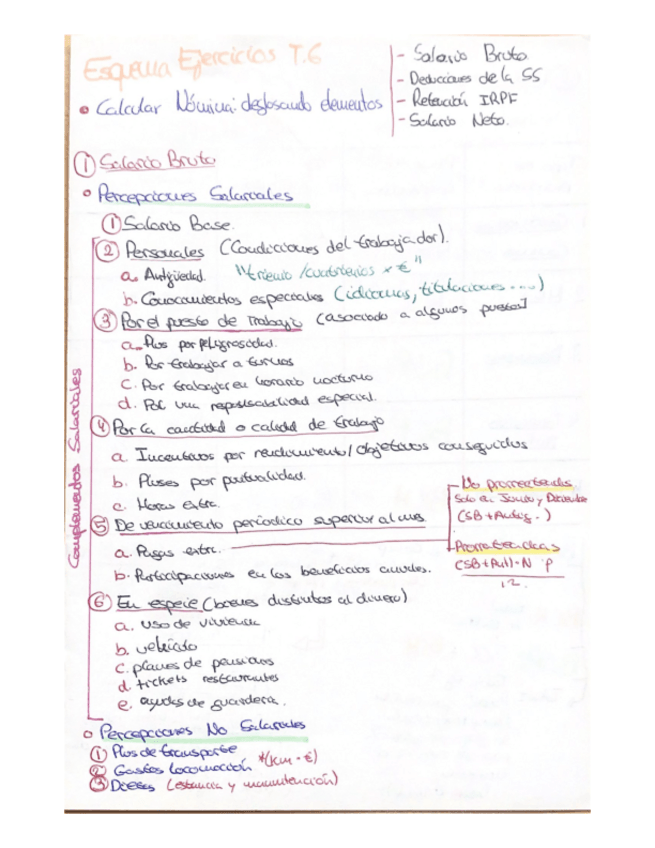 Esquema Ejercicios T.6
• Calcular Nómina: desglosando elementos
- Salario Bruto
- Deducciones de la SS
- Retención IRPF
- Salario Neto.
① Salario Bruto
• Percepciones Salariales
① Salario Base.
Complementos Salariales
② Personales (Condiciones del trabajador).
a. Antigüedad. "trienio/cuatrienios x €"
b. Conocimientos especiales (idiomas, titulaciones ....)
③ Por el puesto de Trabajo (asociado a algunos puestos)
a. Plus por peligrosidad.
b. Por trabajar a turnos
c. Por trabajar en horario nocturno
d. Por una responsabilidad especial.
④ Por la cantidad o calidad de trabajo
a. Incentivos por rendimiento/objetivos conseguidos
b. Pluses por puntualidad.
c. Horas extra.
⑤ De vencimiento periodico superior al mes
a. Pagas extra.
No prorrateadas
Solo en Junio y Diciembre
(SB + Antig.)
Prorrateadas
(SB+Ant)·Nº P
12.
b. Participaciones en los beneficios anuales.
⑥ En especie (bienes distintos al dinero)
a. uso de vivienda
b. vehículo
c. planes de pensiones
d. tickets restaurantes
e. ayudas de guardería.
• Percepciones No Salariales
① Plus de transporte
② Gastos Locomoción *(Km · €)
③ Dietas (estancia y manutención)